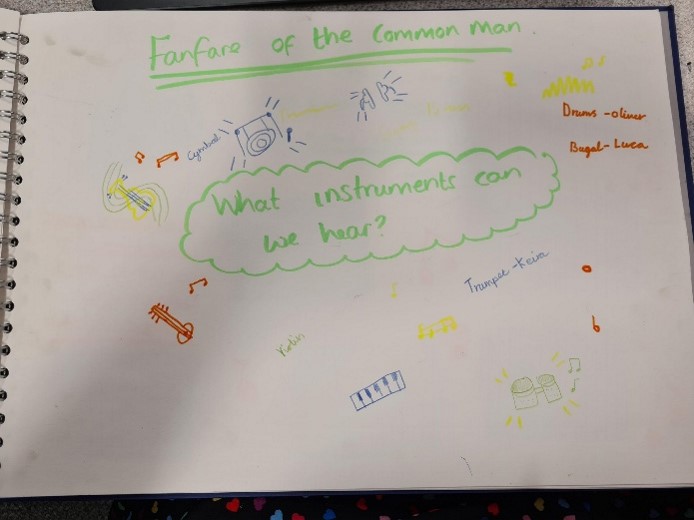 Fanfare of the Common Man.
Drums - oliver
Cymbal
Bugal - Luca
What instruments can
we hear?
Trumpet - Keira
Violin